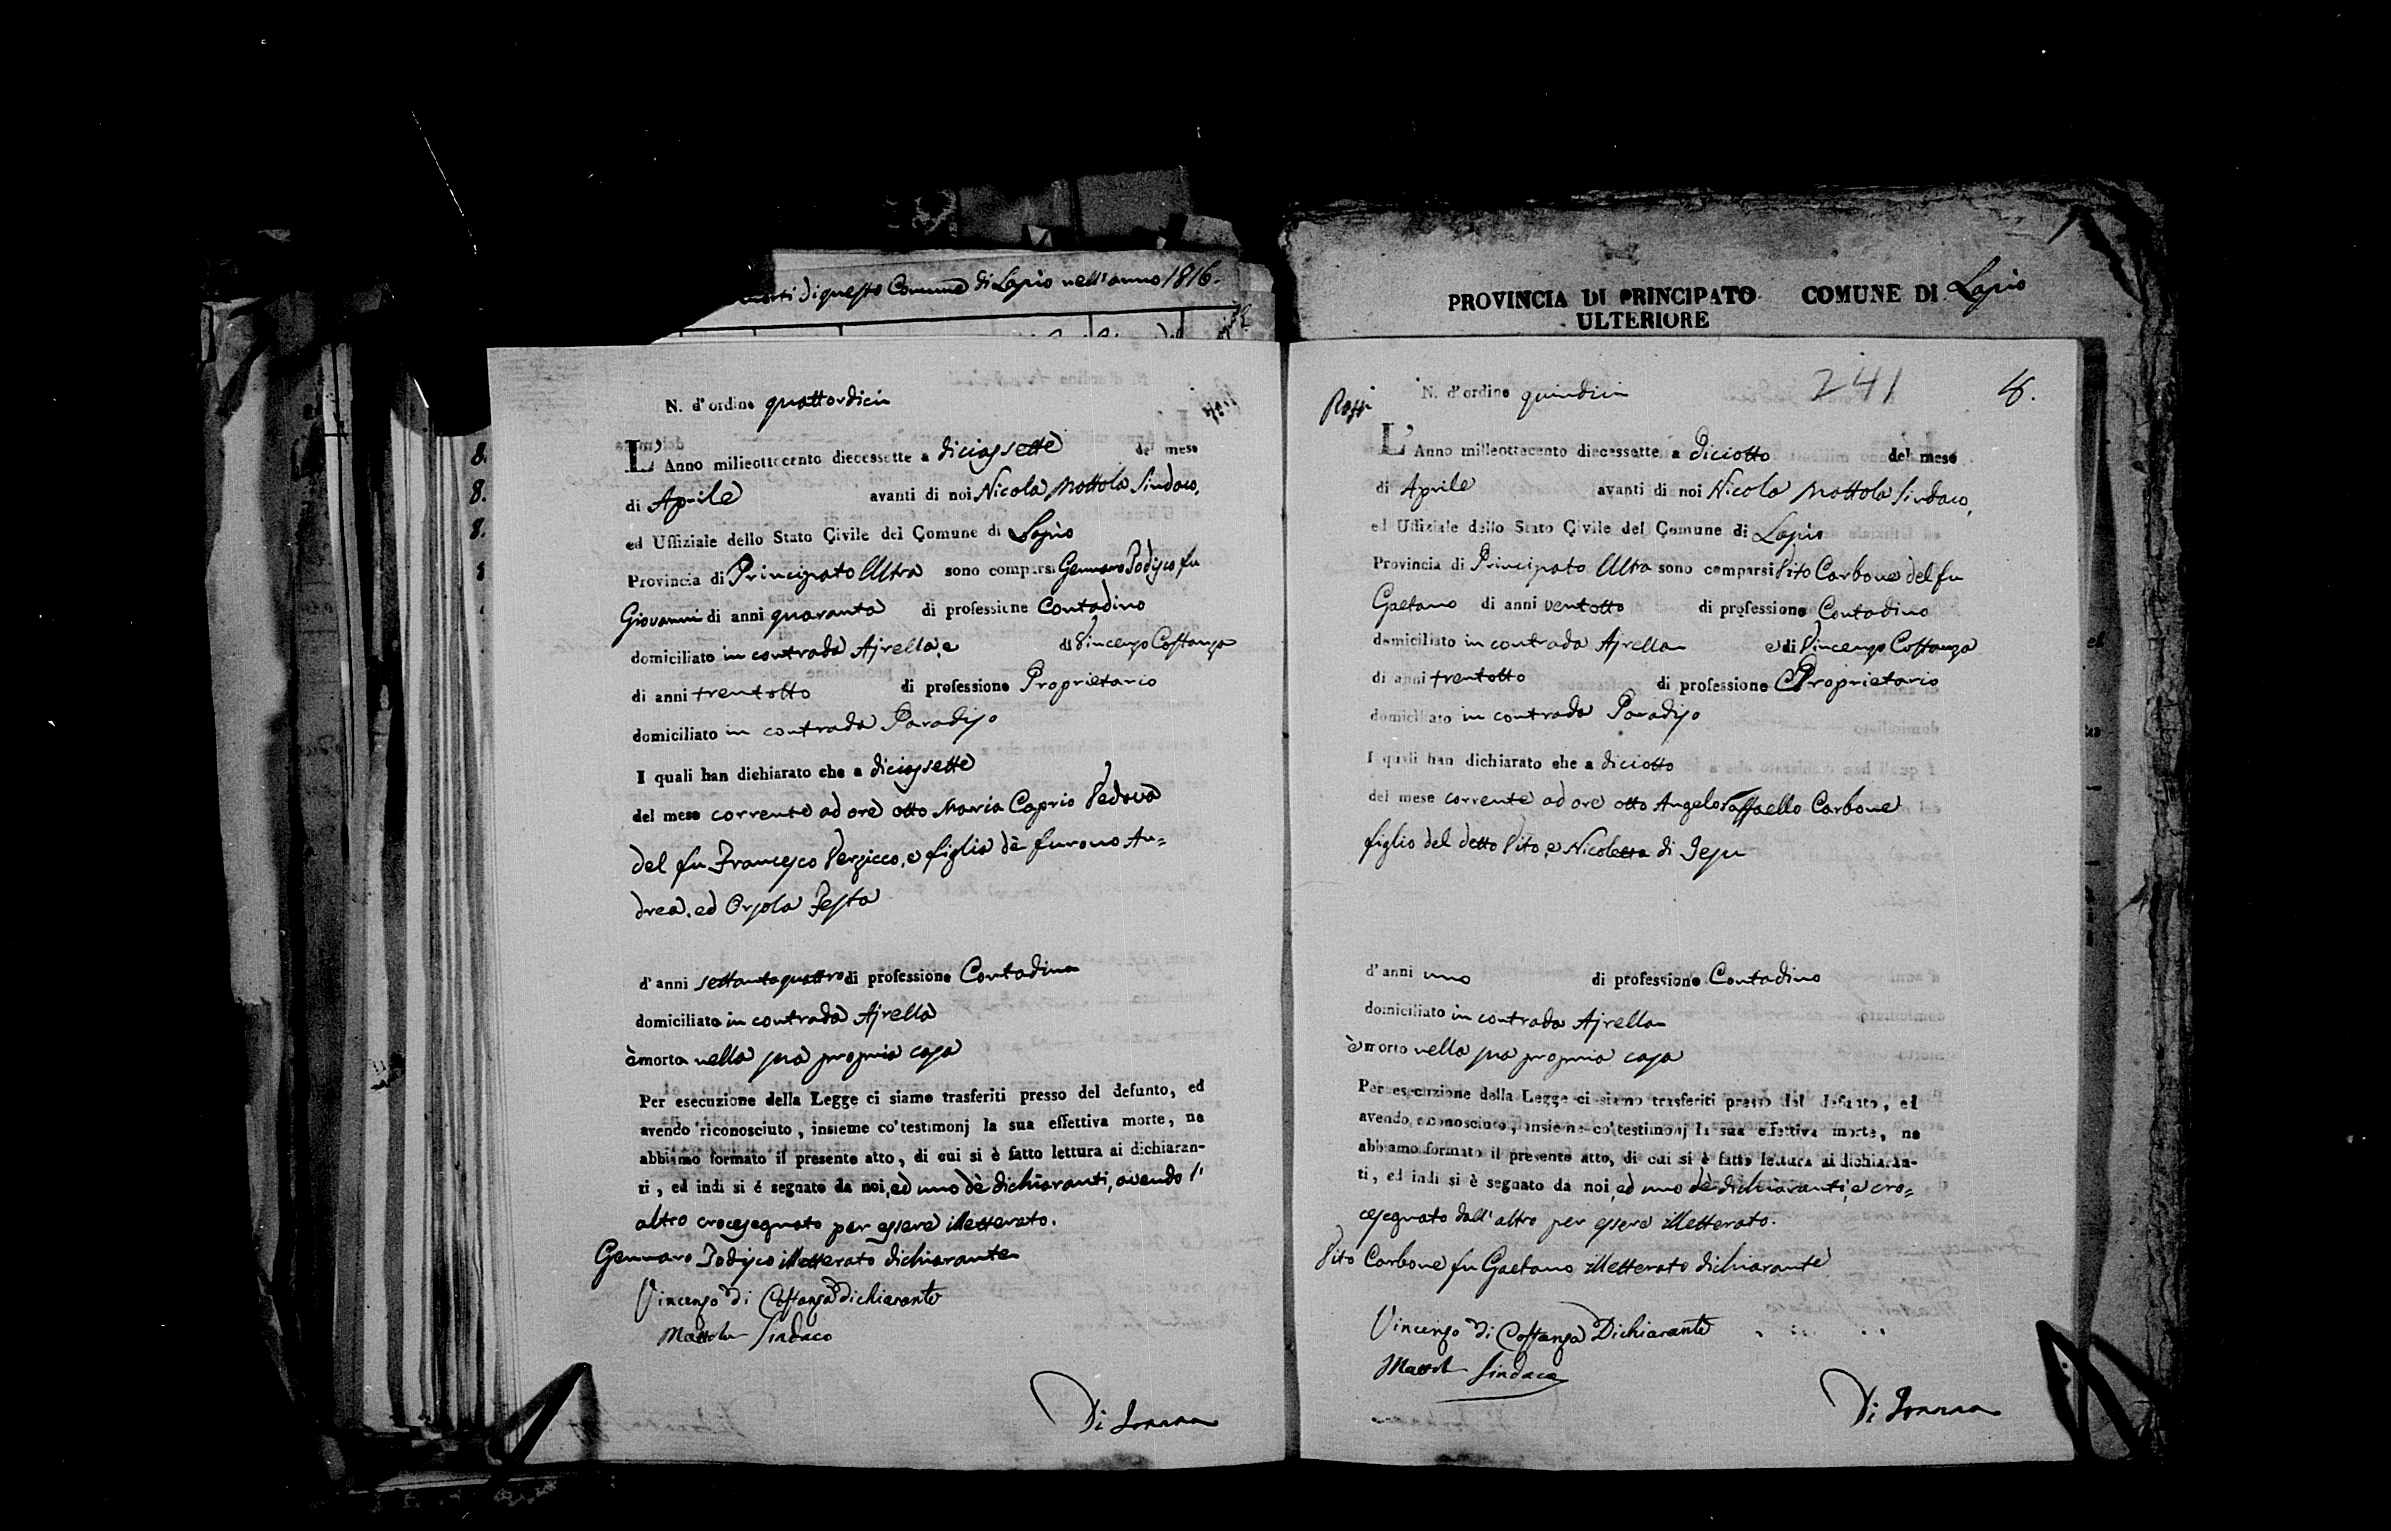 morti di questo Comune di Lapio nell'anno 1816.
N. d'ordine quattordici
L'Anno milleottocento diecessette a diciassette del mese
di Aprile avanti di noi Nicola Mottola Sindaco,
ed Uffiziale dello Stato Civile del Comune di Lapio
Provincia di Principato Ultra sono comparsi Gennaro Jodisco fu
Giovanni di anni quaranta di professione Contadino
domiciliato in contrada Ajrella, e di Vincenzo Costanza
di anni trentotto di professione Proprietario
domiciliato in contrada Paradiso
I quali han dichiarato che a diciassette
del mese corrente ad ore otto Maria Caprio Vedova
del fu Francesco Verzicco, e figlia dè furono An=
drea, ed Orsola Testa
d'anni settantaquattro di professione Contadina
domiciliata in contrada Ajrella
è morta nella sua propria casa
Per esecuzione della Legge ci siamo trasferiti presso del defunto, ed
avendo riconosciuto, insieme co'testimonj la sua effettiva morte, ne
abbiamo formato il presente atto, di cui si è fatto lettura ai dichiaran-
ti, ed indi si è segnato da noi, ed uno dè dichiaranti, avendo l'
altro crocesegnato per essere illetterato.
Gennaro Jodisco illetterato dichiarante
Vincenzo di Costanza Dichiarante
Mottola Sindaco
PROVINCIA DI PRINCIPATO COMUNE DI Lapio
ULTERIORE
N. d'ordine quindici 241 8.
L'Anno milleottocento diecessette a diciotto del mese
di Aprile avanti di noi Nicola Mottola Sindaco,
ed Uffiziale dello Stato Civile del Comune di Lapio
Provincia di Principato Ultra sono comparsi Vito Carbone del fu
Gaetano di anni ventotto di professione Contadino
domiciliato in contrada Ajrella e di Vincenzo Costanza
di anni trentotto di professione Proprietario
domiciliato in contrada Paradiso
I quali han dichiarato che a diciotto
del mese corrente ad ore otto Angeloraffaello Carbone
figlio del detto Vito, e Nicoletta di Jesu
d'anni uno di professione Contadino
domiciliato in contrada Ajrella
è morto nella sua propria casa
Per esecuzione della Legge ci siamo trasferiti presso del defunto, ed
avendo riconosciuto, insieme co'testimonj la sua effettiva morte, ne
abbiamo formato il presente atto, di cui si è fatto lettura ai dichiaran-
ti, ed indi si è segnato da noi, ed uno dè dichiaranti, e cro=
cesegnato dall'altro per essere illetterato.
Vito Carbone fu Gaetano illetterato dichiarante
Vincenzo di Costanza Dichiarante
Mottola Sindaco